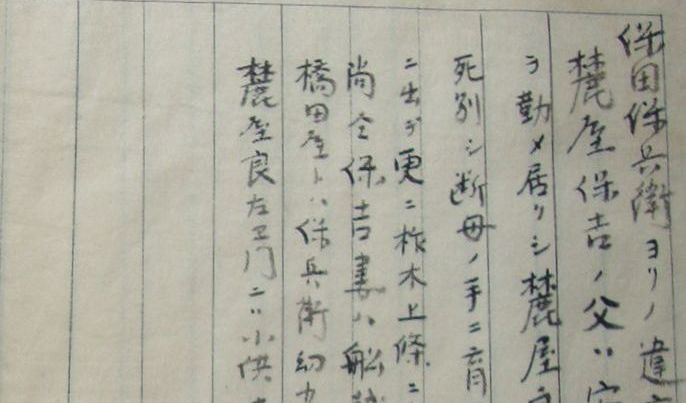 保田保兵衛ヨリノ違
麓屋保吉ノ父ハ
ヲ勤メ居リシ麓屋
死別シ断母ノ手ニ育
ニ出デ更ニ柞木上條ニ
尚全保吉妻ハ船
橋田屋トハ保兵衛幼
麓屋良左エ門ニハ小供